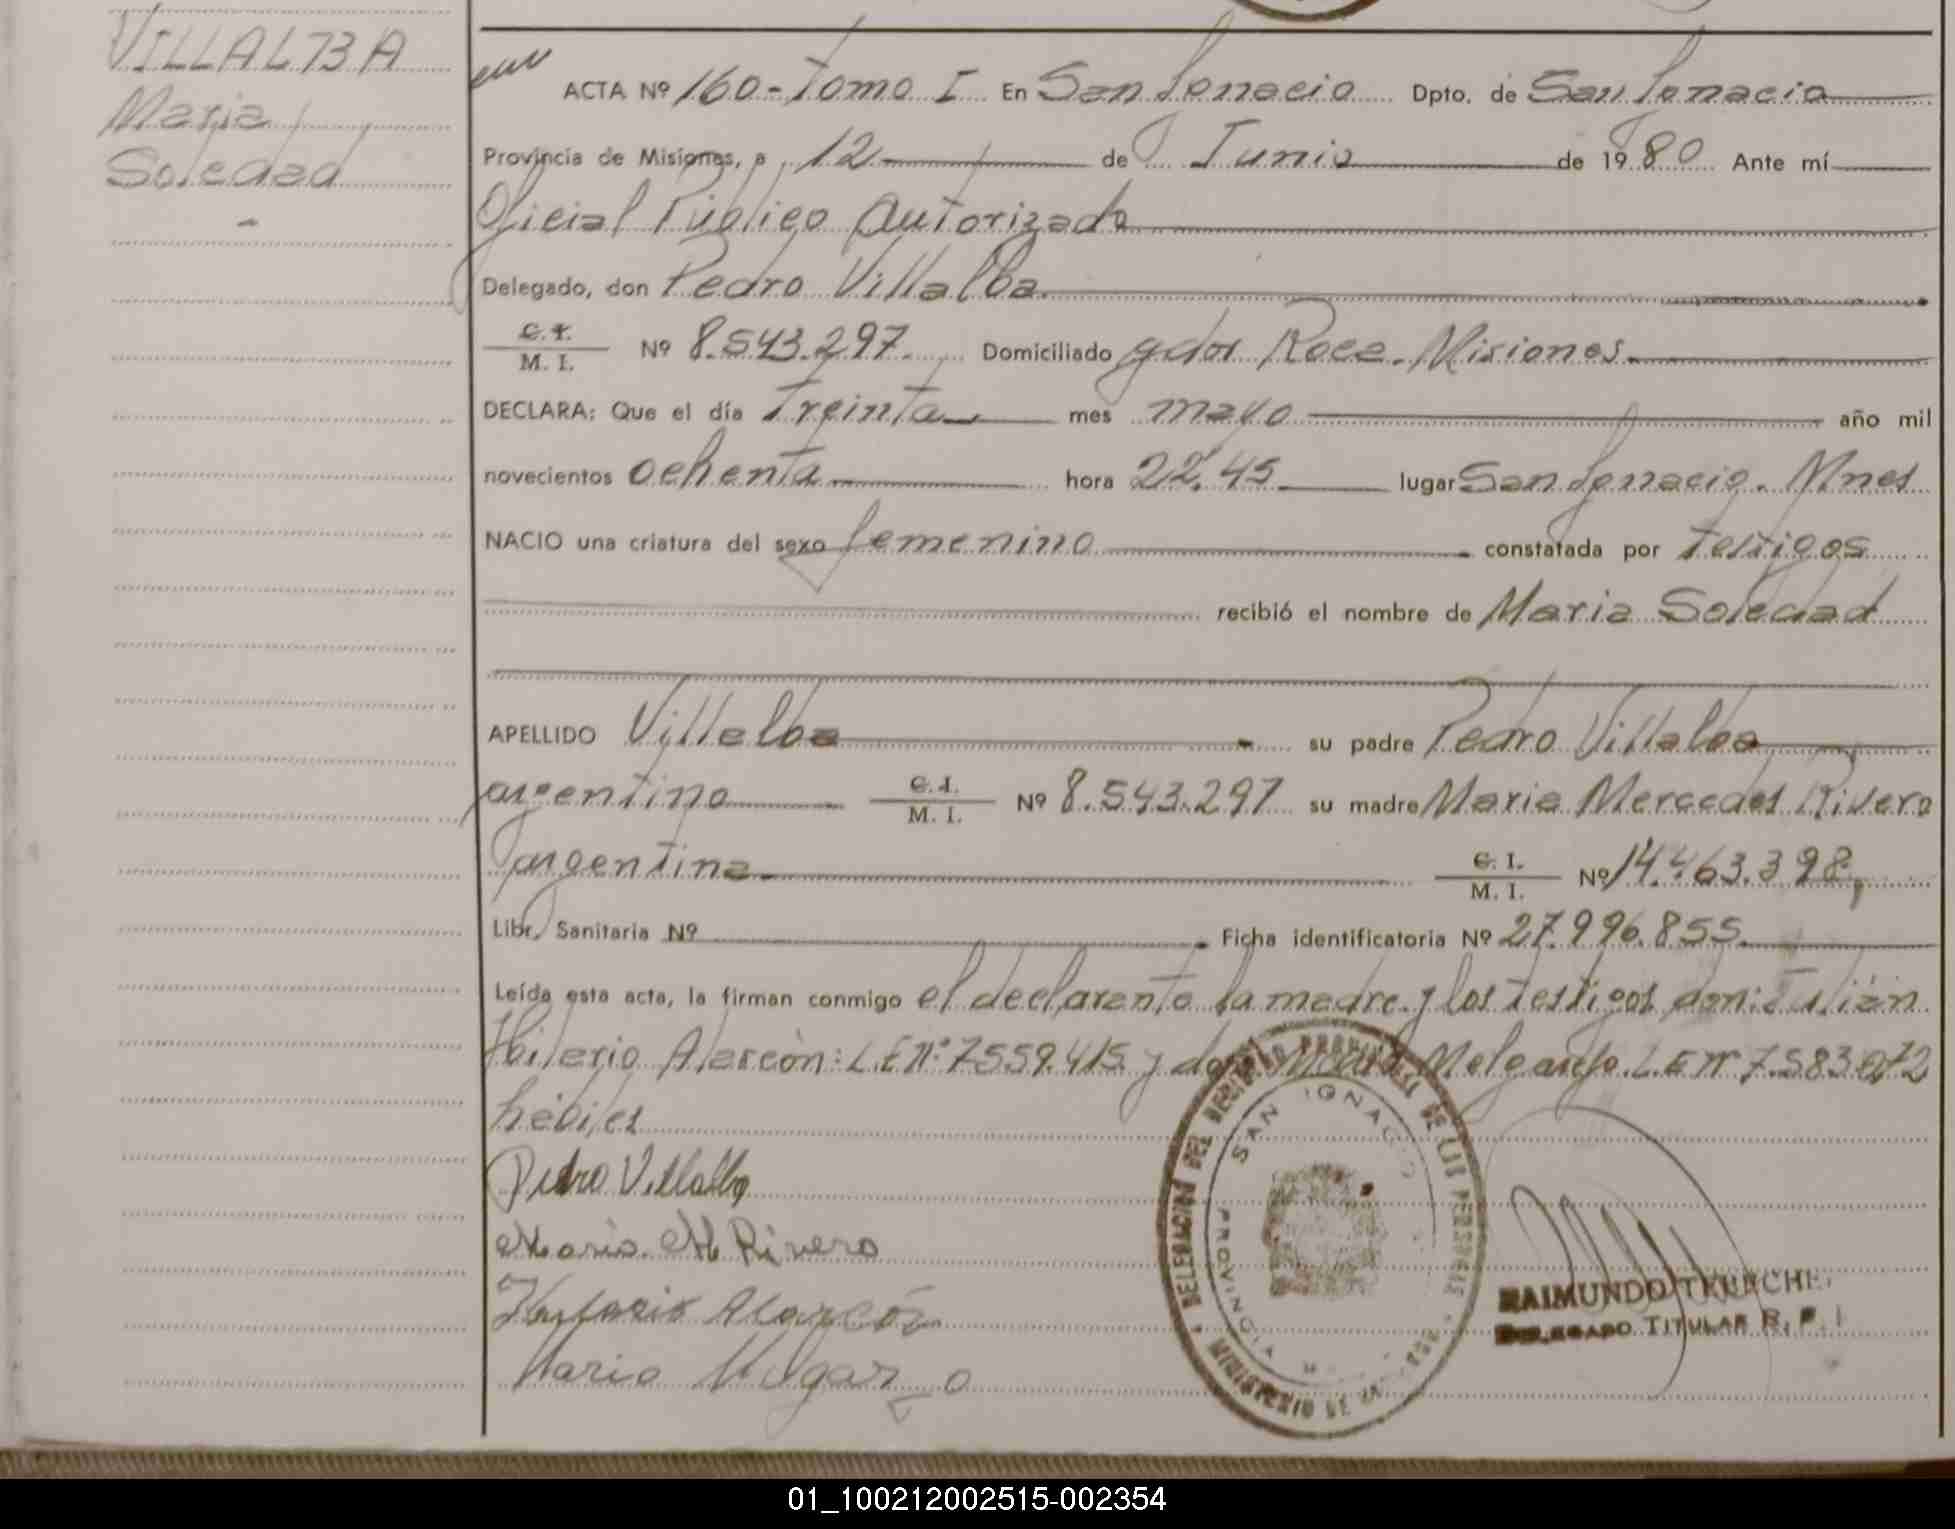 VILLALBA
Maria
Soledad
ACTA Nº 160-Tomo I En San Ignacio Dpto. de San Ignacio
Provincia de Misiones, a 12 de Junio de 1980 Ante mí
Oficial Público Autorizado
Delegado, don Pedro Villalba
C. I.
M. I. Nº 8.543.297. Domiciliado gdor Roca. Misiones.
DECLARA: Que el día Treinta mes mayo año mil
novecientos ochenta hora 22.45 lugar San Ignacio. Mnes
NACIO una criatura del sexo femenino constatada por Testigos
recibió el nombre de Maria Soledad
APELLIDO Villalba su padre Pedro Villalba
argentino C. I. M. I. Nº 8.543.297 su madre Maria Mercedes Rivero
argentina C. I. M. I. Nº 14.463.398,
Libr. Sanitaria Nº Ficha identificatoria Nº 27.996.855.
Leída esta acta, la firman conmigo el declarante la madre y los Testigos don: Julián
Hilario Alarcón: L.E Nº 7559.415 y don Mario Melgarejo. L.E Nº 7.583.072
hábiles
Pedro Villalba
Maria M Rivero
Hilario Alarcón
Mario
DELEGACION DEL REGISTRO PROVINCIAL DE LAS PERSONAS
SAN IGNACIO
PROVINCIA
MINISTERIO DE
RAIMUNDO
DELEGADO TITULAR R. P.
01_100212002515-002354